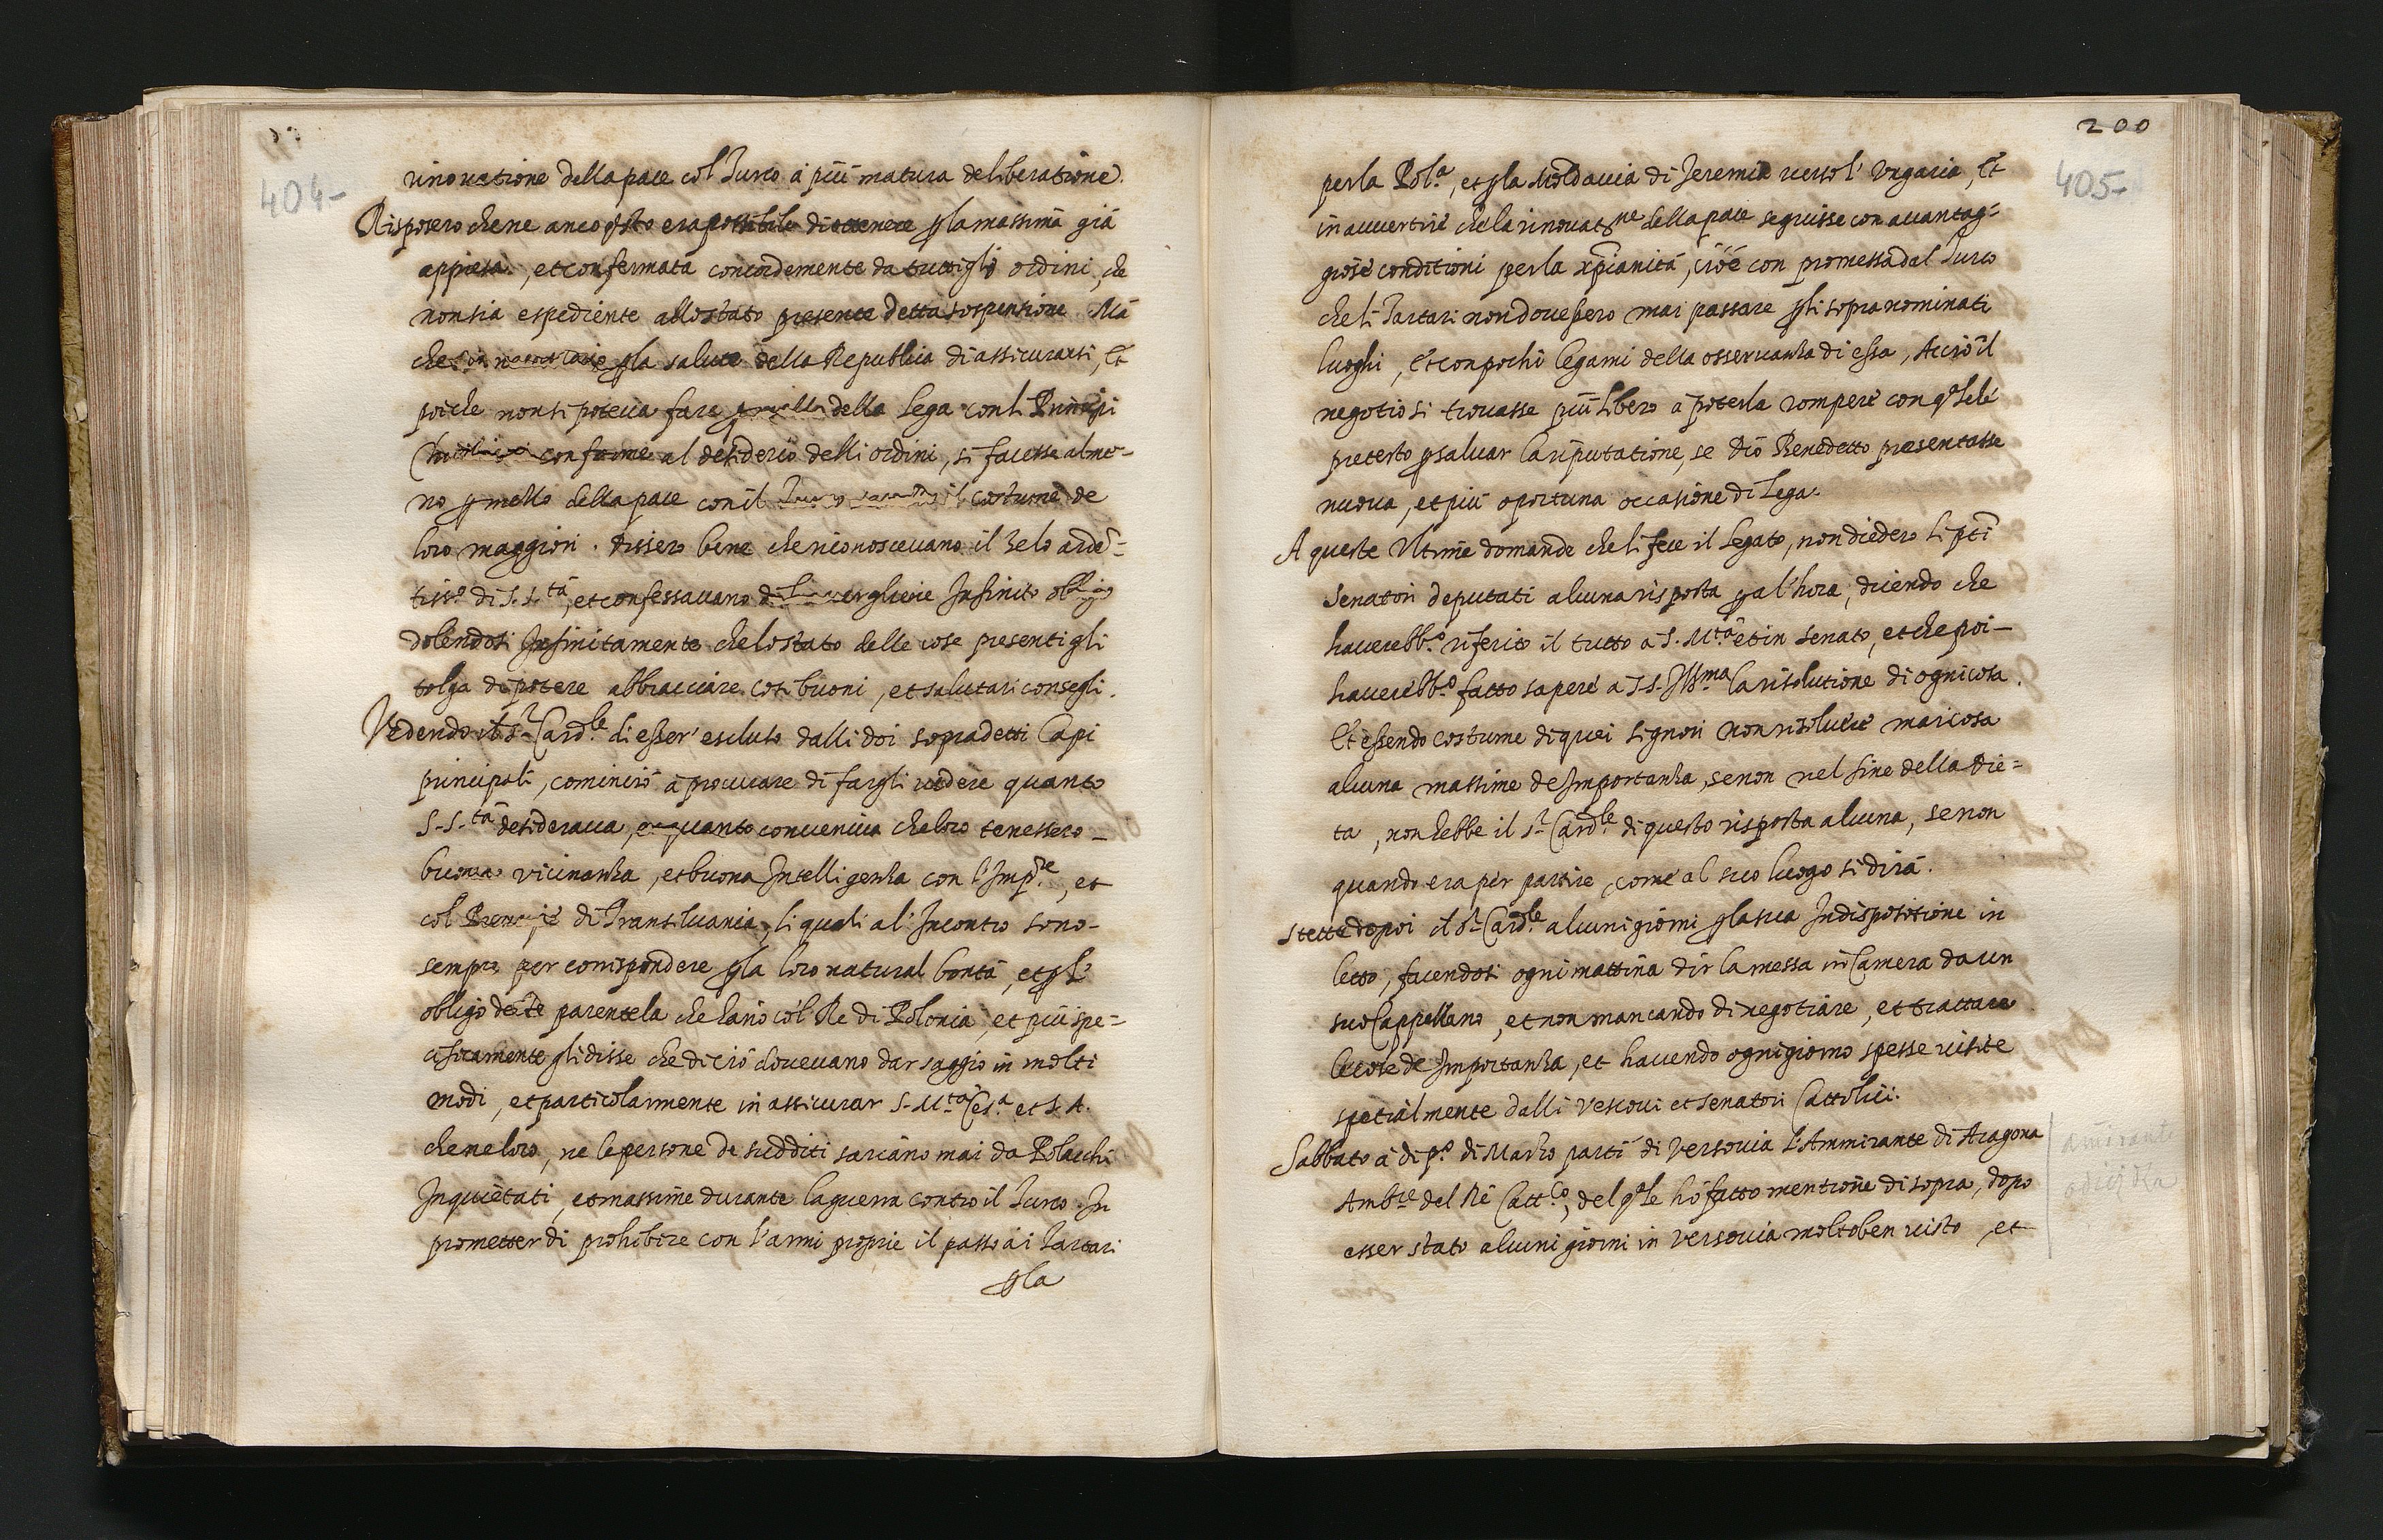 404-
rinovatione della pace col Turco à più matura deliberatione.
Risposero che ne anco qsto era possibile di ottenere p la massima già
appresa, et confermata concordemente da tutti gli ordini, che
non sia espediente allo stato presente detta sospensione. Mà
che sia necessario p la salute della Republica di assicurarsi, Et
poiche non si poteva fare p quella della Lega con li Principi
Christiani conforme al desiderio delli ordini, si facesse alme-
no p mezzo della pace con il Turco il costume de
loro maggiori. Dissero bene che riconoscevano il zelo ardē-
tissᵒ di S. S.ᵗà, et confessavano di havergliene Infinito obligo
dolendosi Infinitamente che lo stato delle cose presenti gli
tolga di potere abbracciare cosi buoni, et salutari consegli.
Vedendo il Sʳ Cardˡᵉ di esser' escluso dalli doi sopradetti Capi
principali, cominciò à procurare di fargli vedere quanto
S. S.ᵗà desiderava, et quanto conveniva che loro tenessero
buona vicinanza, et buona Intelligenza con l'Impʳᵉ, et
col Prencipe di Transilvania, li quali al' Incontro sono
sempre per corrispondere p la loro natural bontà, et p l'
obligo de te parentela che hāno col Re di Polonia, et più spe-
cificamente gli disse che di ciò dovevano dar saggio in molti
modi, et particolarmente in assicurar S. M.ᵗà Ces.ᵃ et S. A.
che ne loro, ne le persone de sudditi sariano mai da Polacchi
Inquietati, et massime durante la guerra contro il Turco. In
prometter di prohibire con l'armi proprie il passo à i Tartari
p la
200
405-
per la Pol.ᵃ, et p la Moldavia di Jeremia verso l' Vngaria, Et
in avvertire che la rinovatⁿᵉ della pace seguisse con avantag-
giose conditioni per la xpianità, cioè con promessa dal Turco
che li Tartari non dovessero mai passare p li sopranominati
luoghi, Et con pochi legami della osservanza di essa, Acciò il
negotio si trovasse più libero à poterla rompere con qᵃlche
pretesto p salvar la riputatione, se Dio Benedetto presentasse
nuova, et più oportuna occasione di Lega.
A queste Vltime domande che li fece il Legato, non diedero li pti
Senatori deputati alcuna risposta p al'hora, dicendo che
haverebb.ᵒ riferito il tutto a S. M.ᵗà et in Senato, et che poi
haverebb.ᵒ fatto sapere a S. S. Illᵐᵃ la risolutione di ogni cosa.
Et essendo costume di quei Signori non risolvere mai cosa
alcuna massime de Importanza, se non nel fine della Die-
ta, non hebbe il Sʳ Cardˡᵉ di questo risposta alcuna, se non
quando era per partire, come al suo luogo si dirà.
Stette dopoi il Sʳ Cardˡᵉ alcuni giorni p la sua Indispositione in
letto, facendosi ogni mattina dir la messa in Camera da un
suo Cappellano, et non mancando di negotiare, et trattare
le cose de Importanza, et havendo ogni giorno spesse visite
spetialmente dalli Vescovi et Senatori Cattolici.
Sabbato à di pᵒ di Marzo partì di Versovia l'Ammirante di Aragona
Ambʳᵉ del Rè Cattᶜᵒ, del qᵃle hò fatto mentione di sopra, dopo
esser stato alcuni giorni in Versovia molto ben visto, et